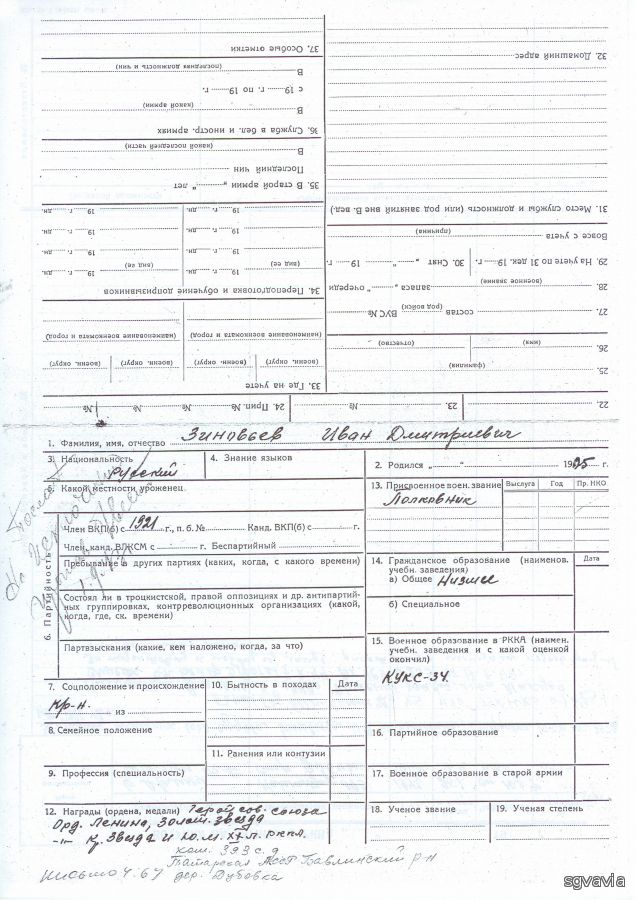 37. Особые отметки
(последняя должность и чин)
В
с 19 г. по 19 г.
(какой армии)
В
36. Служба в бел. и иностр. армиях
(какой последней части)
В
Последний чин
35. В старой армии „ “ лет
19 г. дн. 19 г. дн.
19 г. дн. 19 г. дн.
19 г. дн. 19 г. дн.
(вид ее) 19 г. дн. (вид ее) 19 г. дн.
34. Переподготовка и обучение допризывников
(наименование военкомата и город) (наименование военкомата и город)
(военн. округ) (военн. округ) (военн. округ) (военн. округ)
33. Где на учете
32. Домашний адрес
31. Место службы и должность (или род занятий вне В. вед.)
(причина)
Вовсе с учета
29. На учете по 31 дек. 19 г. 30. Снят „ “ 19 г.
(военное звание)
28. запаса „ “ очереди
(род войск)
27. состав ВУС №
(имя) (отчество)
26.
(фамилия)
25.
22. 23. № 24. Прип. № №
1. Фамилия, имя, отчество Зиновьев Иван Дмитриевич
3. Национальность Русский
4. Знание языков
2. Родился „ “ 1905 г.
5. Какой местности уроженец
13. Присвоенное воен. звание Выслуга Год Пр. НКО
Полковник
6. Партийность
Член ВКП(б) с 1921 г., п. б. № Канд. ВКП(б) с г.
Член, канд. ВЛКСМ с г. Беспартийный
Пребывание в других партиях (каких, когда, с какого времени)
Состоял ли в троцкистской, правой оппозиции и др. антипартий-
ных группировках, контрреволюционных организациях (какой,
когда, где, ск. времени)
Партвзыскания (какие, кем наложено, когда, за что)
14. Гражданское образование (наименов. учебн. заведения) Дата
а) Общее Низшее
б) Специальное
15. Военное образование в РККА (наимен.
учебн. заведения и с какой оценкой
окончил)
КУКС-34.
7. Соцположение и происхождение
Кр-н. из
8. Семейное положение
9. Профессия (специальность)
10. Бытность в походах Дата
11. Ранения или контузии
16. Партийное образование
17. Военное образование в старой армии
18. Ученое звание
19. Ученая степень
12. Награды (ордена, медали) Герой Сов. Союза
Орд. Ленина, Золот. Звезда
-"- Кр. Звезда и ю. м. XX л. РККА.
ком. 393 с. д
Татарская АССР Бавлинский р-н
Письмо 4. 67 дер. Дубовка
sgvavia